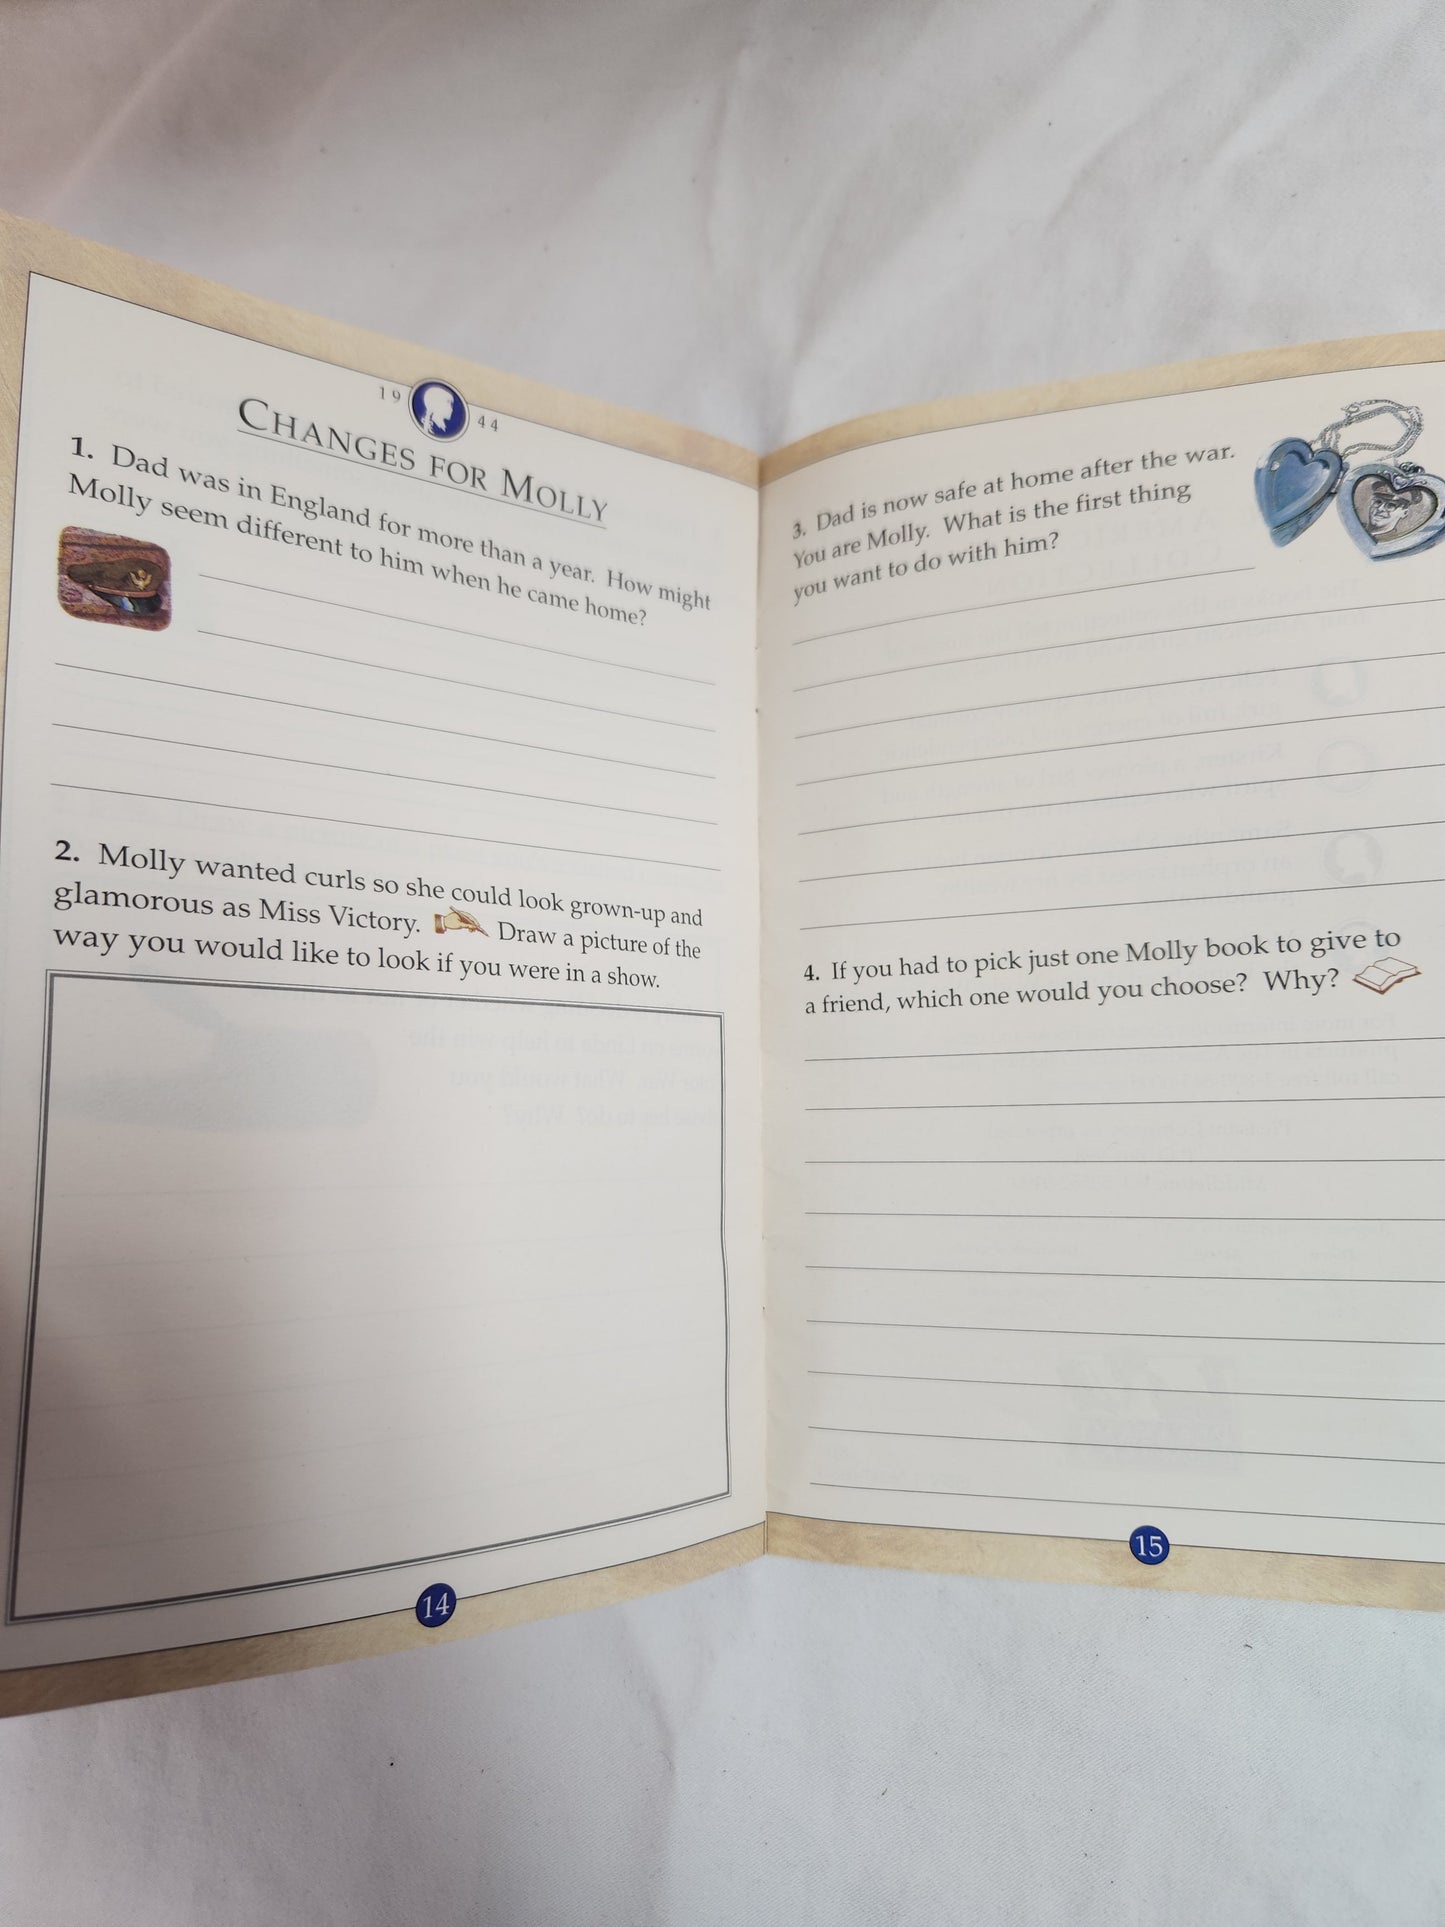 19 44
CHANGES FOR MOLLY
1. Dad was in England for more than a year. How might
Molly seem different to him when he came home?
2. Molly wanted curls so she could look grown-up and
glamorous as Miss Victory. Draw a picture of the
way you would like to look if you were in a show.
14
3. Dad is now safe at home after the war.
You are Molly. What is the first thing
you want to do with him?
4. If you had to pick just one Molly book to give to
a friend, which one would you choose? Why?
15